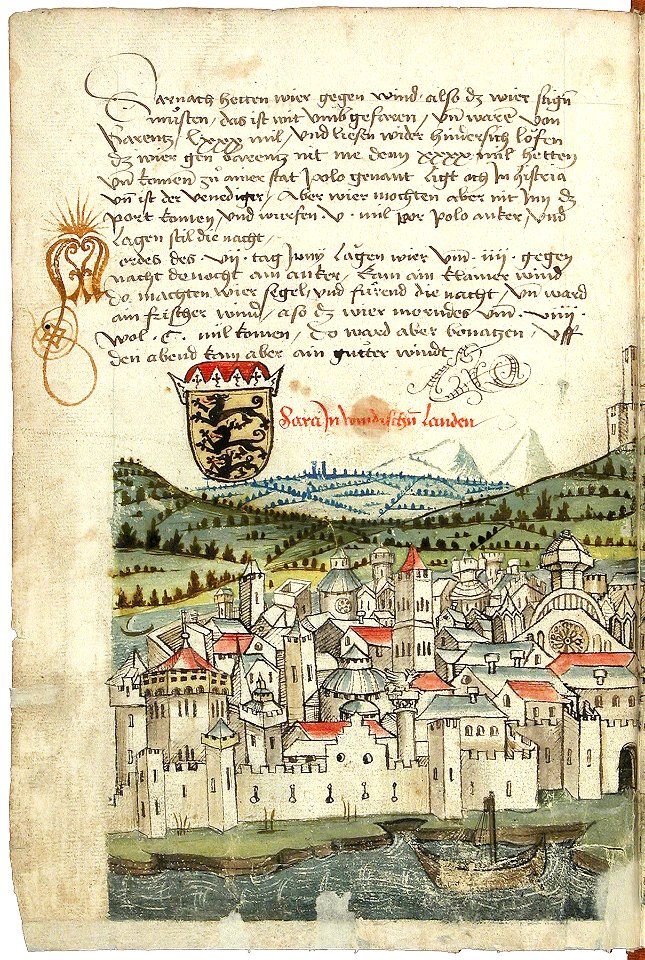 Darnach hetten wier gegen wind · also dz wier stign
müsten, das ist wit vmb gefaren, vn̄ waren von
Parentz lxxxx mil, vnd liesen wider hindersich lǒfen
dz wier gen barentz nit me denn xxxxx mil hetten
vn̄ komen zů ainer stat polo genant ligt och In histeria
vn̄ ist der venediger, Aber wier mochten aber nit Inn dz
port komen, vnd wurfen v · mil vor polo anker, vnd
Lagen stil die nacht,
Mordes des · vij · tag Junij Lagen wier vm̄ · iiij · gegen
nacht denocht am anker, kam ain klainer wind
do machten wier segel, vnd fůrend die nacht, vn̄ ward
ain frischer wind, also dz wier morndes vm̄ · viiij ·
wol · c · mil komen, do ward aber bonatzen, vff
den abend kam aber ain gůtter windt
Sara In windischen landen